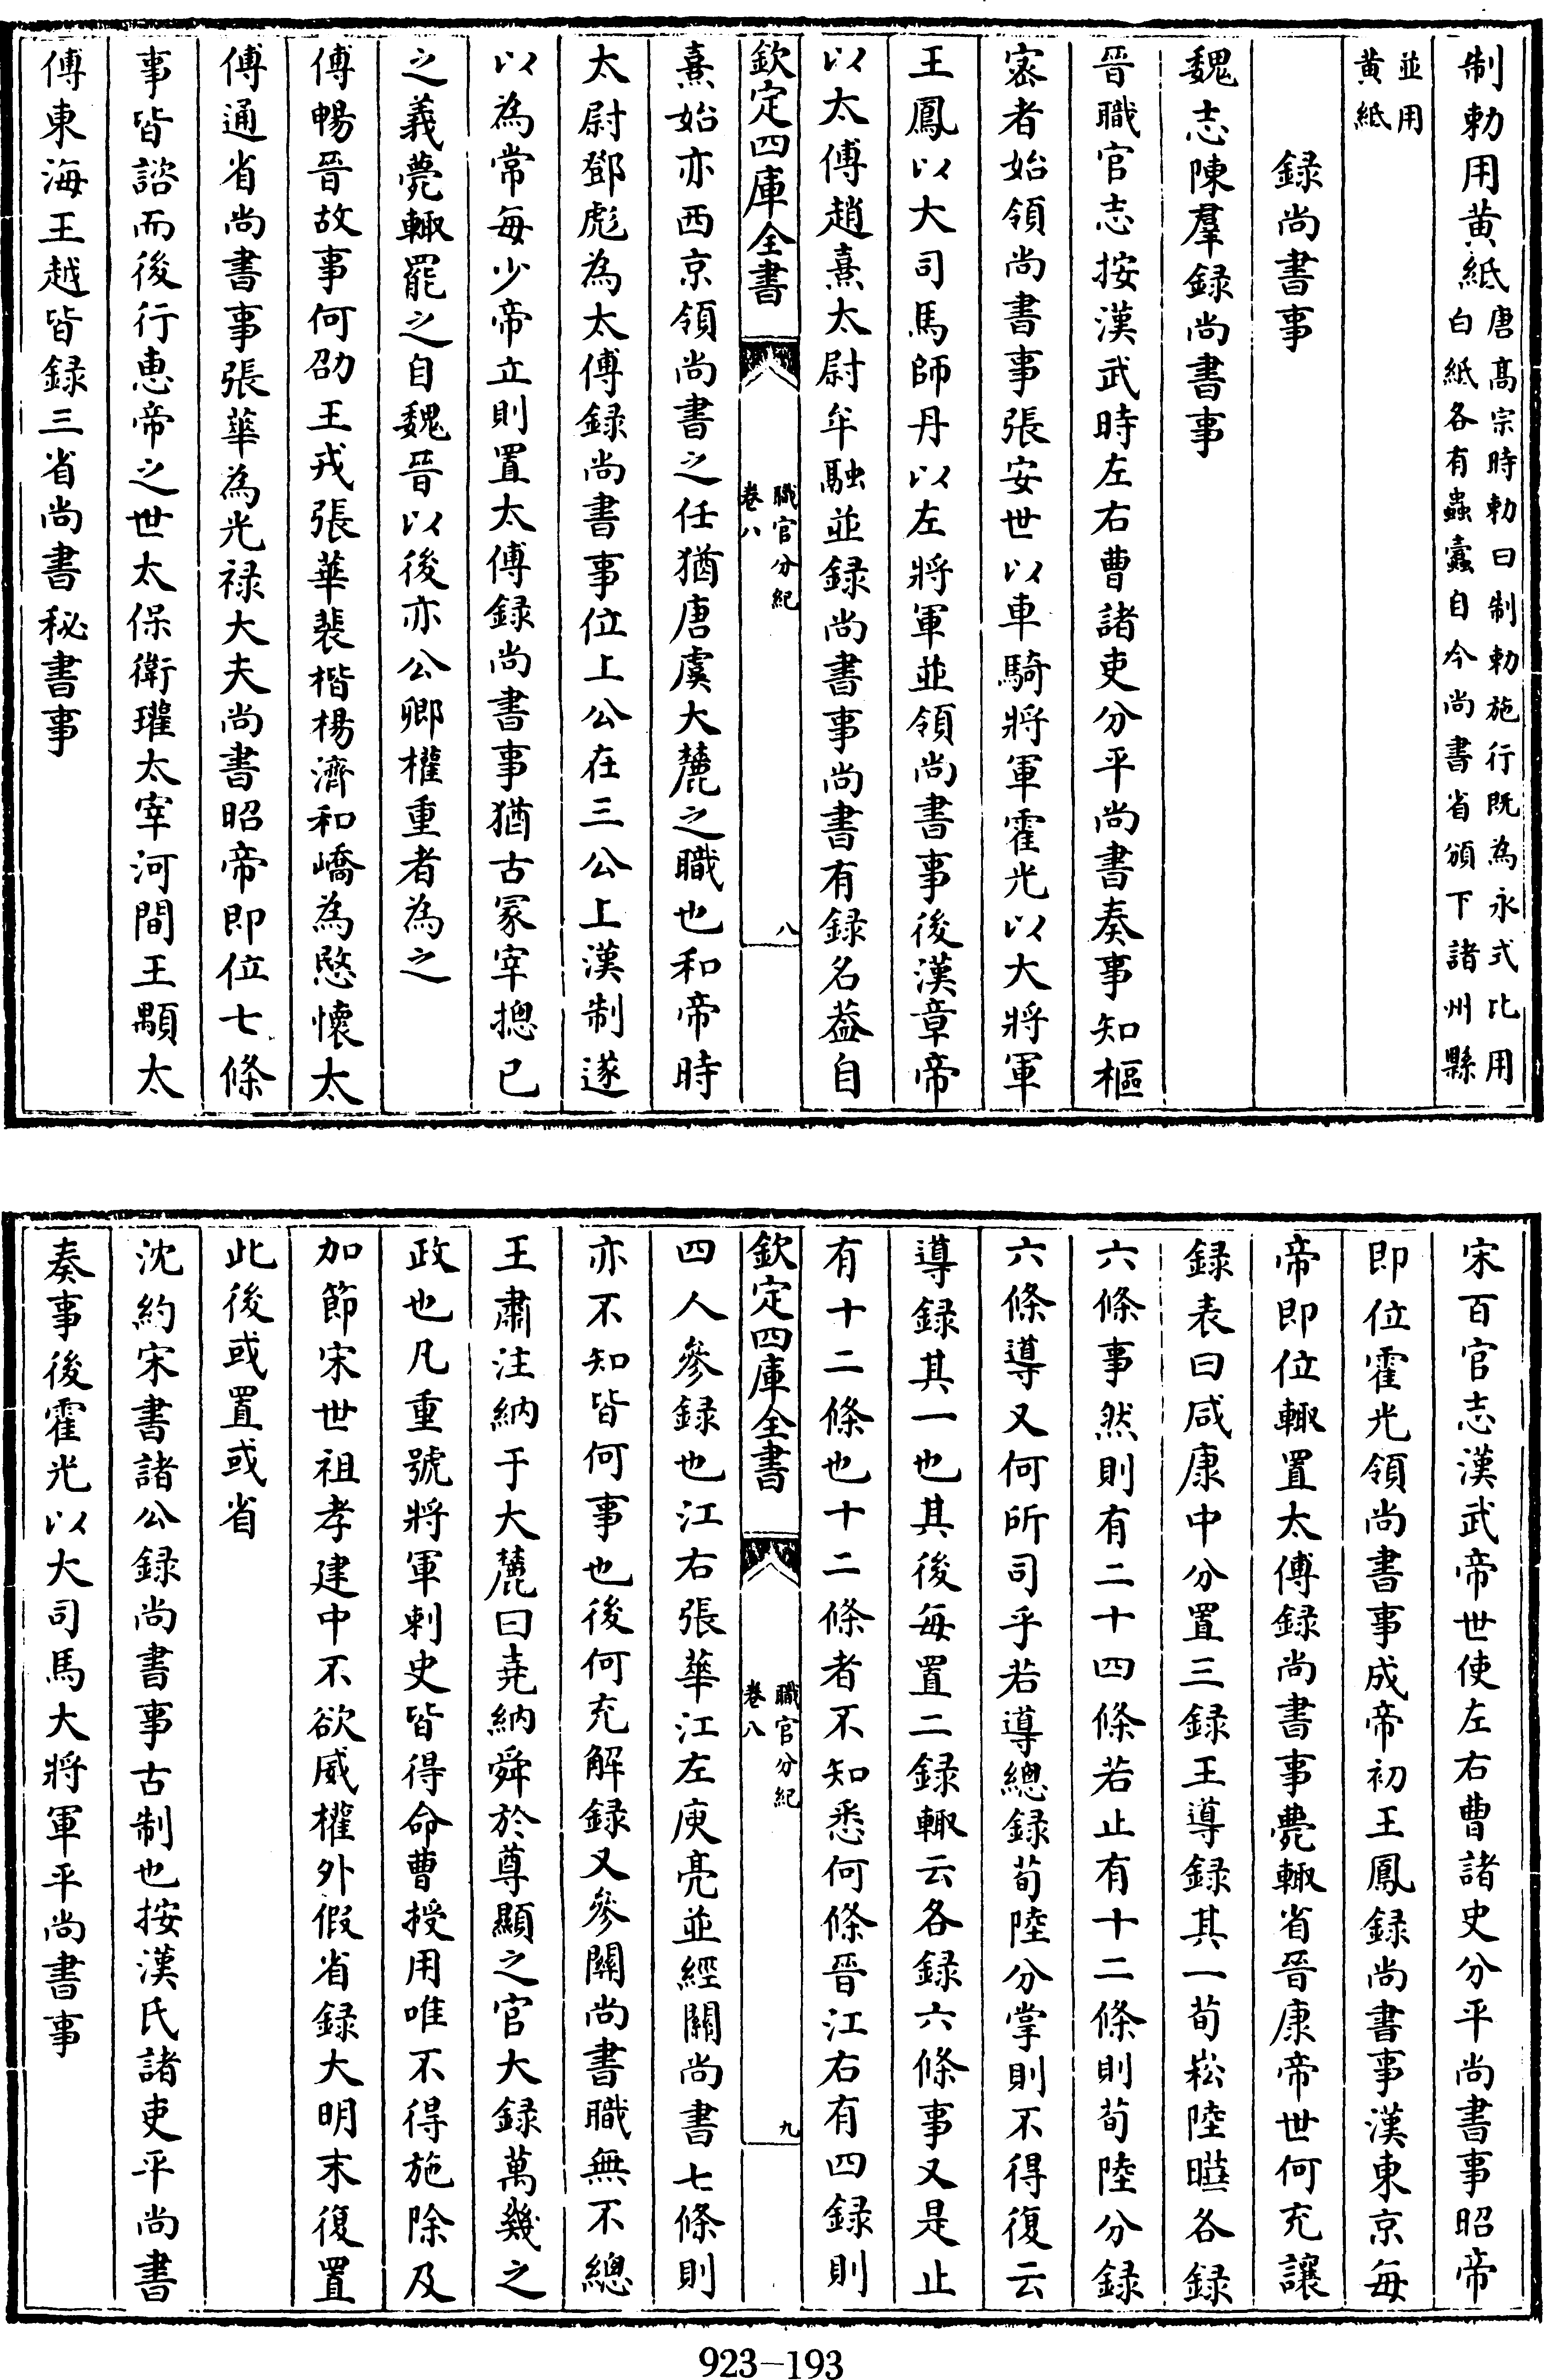 制勅用黄紙唐髙宗時勅曰制勅施行既為永式比用
白紙各有蟲蠧自今尚書省頒下諸州縣
並用
黄紙
録尚書事
魏志陳羣録尚書事
晉職官志按漢武時左右曹諸吏分平尚書奏事知樞
宻者始領尚書事張安世以車騎將軍霍光以大將軍
王鳳以大司馬師丹以左將軍並領尚書事後漢章帝
以太傅趙熹太尉牟融並録尚書事尚書有録名葢自
欽定四庫全書
職官分紀
卷八
八
熹始亦西京領尚書之任猶唐虞大麓之職也和帝時
太尉鄧彪為太傅録尚書事位上公在三公上漢制遂
以為常每少帝立則置太傅録尚書事猶古冢宰摠已
之義薨輙罷之自魏晉以後亦公卿權重者為之
傅暢晉故事何劭王戎張華裴楷楊濟和嶠為愍懷太
傅通省尚書事張華為光禄大夫尚書昭帝即位七條
事皆諮而後行惠帝之世太保衛瓘太宰河間王顒太
傅東海王越皆録三省尚書秘書事
宋百官志漢武帝世使左右曹諸史分平尚書事昭帝
即位霍光領尚書事成帝初王鳳録尚書事漢東京每
帝即位輙置太傅録尚書事薨輙省晉康帝世何充讓
録表曰咸康中分置三録王導録其一荀崧陸曄各録
六條事然則有二十四條若止有十二條則荀陸分録
六條導又何所司乎若導總録荀陸分掌則不得復云
導録其一也其後每置二録輙云各録六條事又是止
有十二條也十二條者不知悉何條晉江右有四録則
欽定四庫全書
職官分紀
卷八
九
四人參録也江右張華江左庾亮並經關尚書七條則
亦不知皆何事也後何充解録又參關尚書職無不總
王肅注納于大麓曰堯納舜於尊顯之官大録萬幾之
政也凡重號將軍刺史皆得命曹授用唯不得施除及
加節宋世祖孝建中不欲威權外假省録大明末復置
此後或置或省
沈約宋書諸公録尚書事古制也按漢氏諸吏平尚書
奏事後霍光以大司馬大將軍平尚書事
923—193